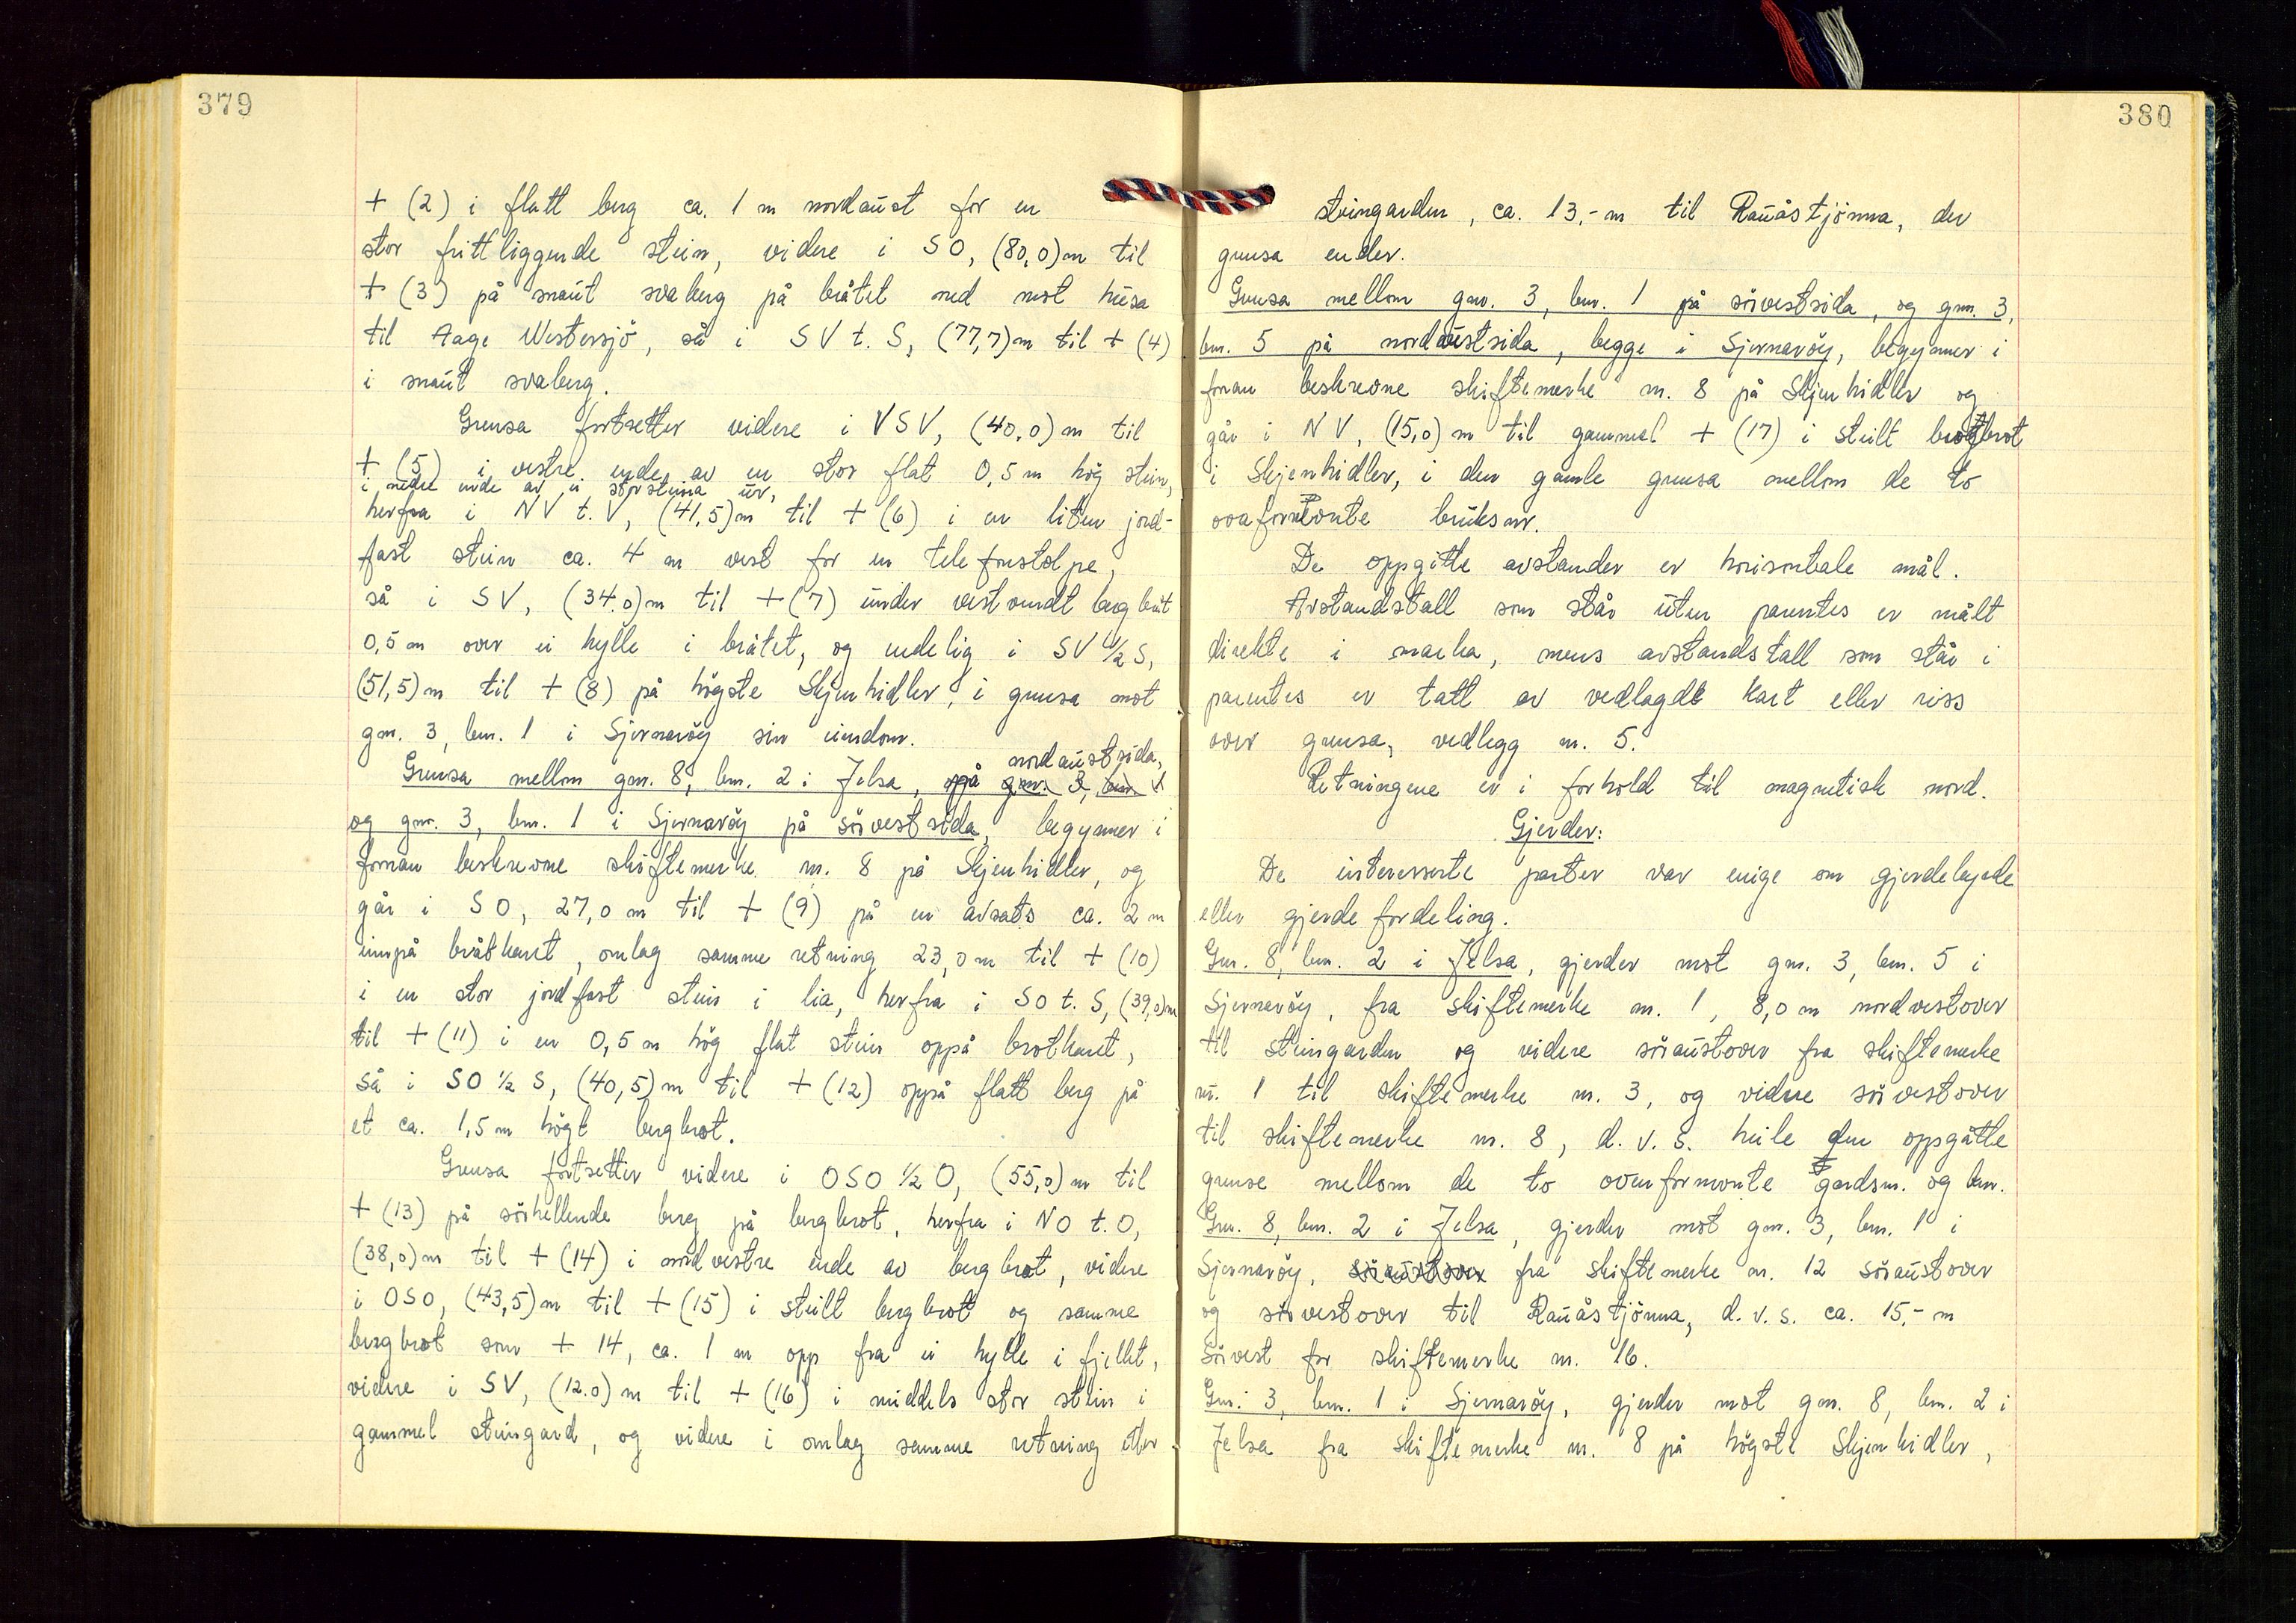 379
+ (2) i flatt berg ca. 1 m nordaust for en
stor frittliggende stein, videre i SO, (80,0)m til
+ (3) på snaut svaberg på bråtet ned mot husa
til Aage Westersjö, så i SV t. S, (77,7)m til + (4)
i snaut svaberg.
Grensa fortsetter videre i VSV, (40,0)m til
+ (5) i vestre ende av en stor flat 0,5 m hög stein,
i nedre ende av ei storsteina ur,
herfra i NV t. V, (41,5)m til + (6) i en liten jord-
fast stein ca. 4 m vest for en telefonstolpe,
så i SV, (34.0)m til + (7) under vestvendt berg bråt
0,5 m over ei hylle i bråtet, og endelig i SV 1/2 S,
(51,5)m til + (8) på högste Skjenhidler, i grensa mot
gnr. 3, bnr. 1 i Sjernaröy sin eiendom.
nordaustsida,
Grensa mellom gnr. 8, bnr. 2 i Jelsa, på gnr. 3, bnr. 1
og gnr. 3, bnr. 1 i Sjernaröy på sörvestsida, begynner i
foran beskrevne skiftemerke nr. 8 på Skjenhidler, og
går i SO, 27,0 m til + (9) på en avsats ca. 2 m
innpå bråtkant, omlag samme retning 23,0 m til + (10)
i en stor jordfast stein i lia, herfra i SO t. S, (39,0)m
til + (11) i en 0,5 m hög flat stein oppå brotkant,
så i SO 1/2 S, (40,5)m til + (12) oppå flatt berg på
et ca. 1,5 m högt bergbrot.
Grensa fortsetter videre i OSO 1/2 O, (55,0)m til
+ (13) på sörhellende berg på bergbrot, herfra i NO t. O,
(38,0)m til + (14) i nordvestre ende av bergbrot, videre
i OSO, (43,5)m til + (15) i steilt bergbrot og samme
bergbrot som + 14, ca. 1 m opp fra ei hylle i fjellet,
videre i SV, (12.0)m til + (16) i middels stor stein i
gammel steingard, og videre i omlag samme retning etter
380
steingarden, ca. 13,- m til Rauåstjönna, der
grensa ender.
Grensa mellom gnr. 3, bnr. 1 på sörvestsida, og gnr. 3,
bnr. 5 på nordvestsida, begge i Sjernaröy, begynner i
foran beskrevne skiftemerke nr. 8 på Skjenhidler og
går i NV, (15,0)m til gammel + (17) i steilt brot
i Skjenhidler, i den gamle grensa mellom de to
ovafornevnte bruksnr.
De oppgitte avstander er horisontale mål.
Avstandstall som står uten parentes er målt
direkte i marka, mens avstandstall som står i
parentes er tatt av vedlagdt kart eller riss
over grensa, vedlegg nr. 5.
Retningene er i forhold til magnetisk nord.
Gjerder:
De interesserte parter var enige om gjerdebyrde
eller gjerdefordeling.
Gnr. 8, bnr. 2 i Jelsa, gjerder mot gnr. 3, bnr. 5 i
Sjernaröy, fra skiftemerke nr. 1, 8,0 m nordvestover
til steingarden og videre söraustover fra skiftemerke
nr. 1 til skiftemerke nr. 3, og videre sörvestover
til skiftemerke nr. 8, d. v. s. heile den oppgåtte
grense mellom de to ovenfornevnte gardsnr. og bnr.
Gnr. 8, bnr. 2 i Jelsa, gjerder mot gnr. 3, bnr. 1 i
Sjernaröy, söraustover fra skiftemerke nr. 12 söraustover
og sörvestover til Rauåstjönna, d. v. s. ca. 15,- m
sörvest for skiftemerke nr. 16.
Gnr. 3, bnr. 1 i Sjernaröy, gjerder mot gnr. 8, bnr. 2 i
Jelsa fra skiftemerke nr. 8 på högste Skjenhidler,